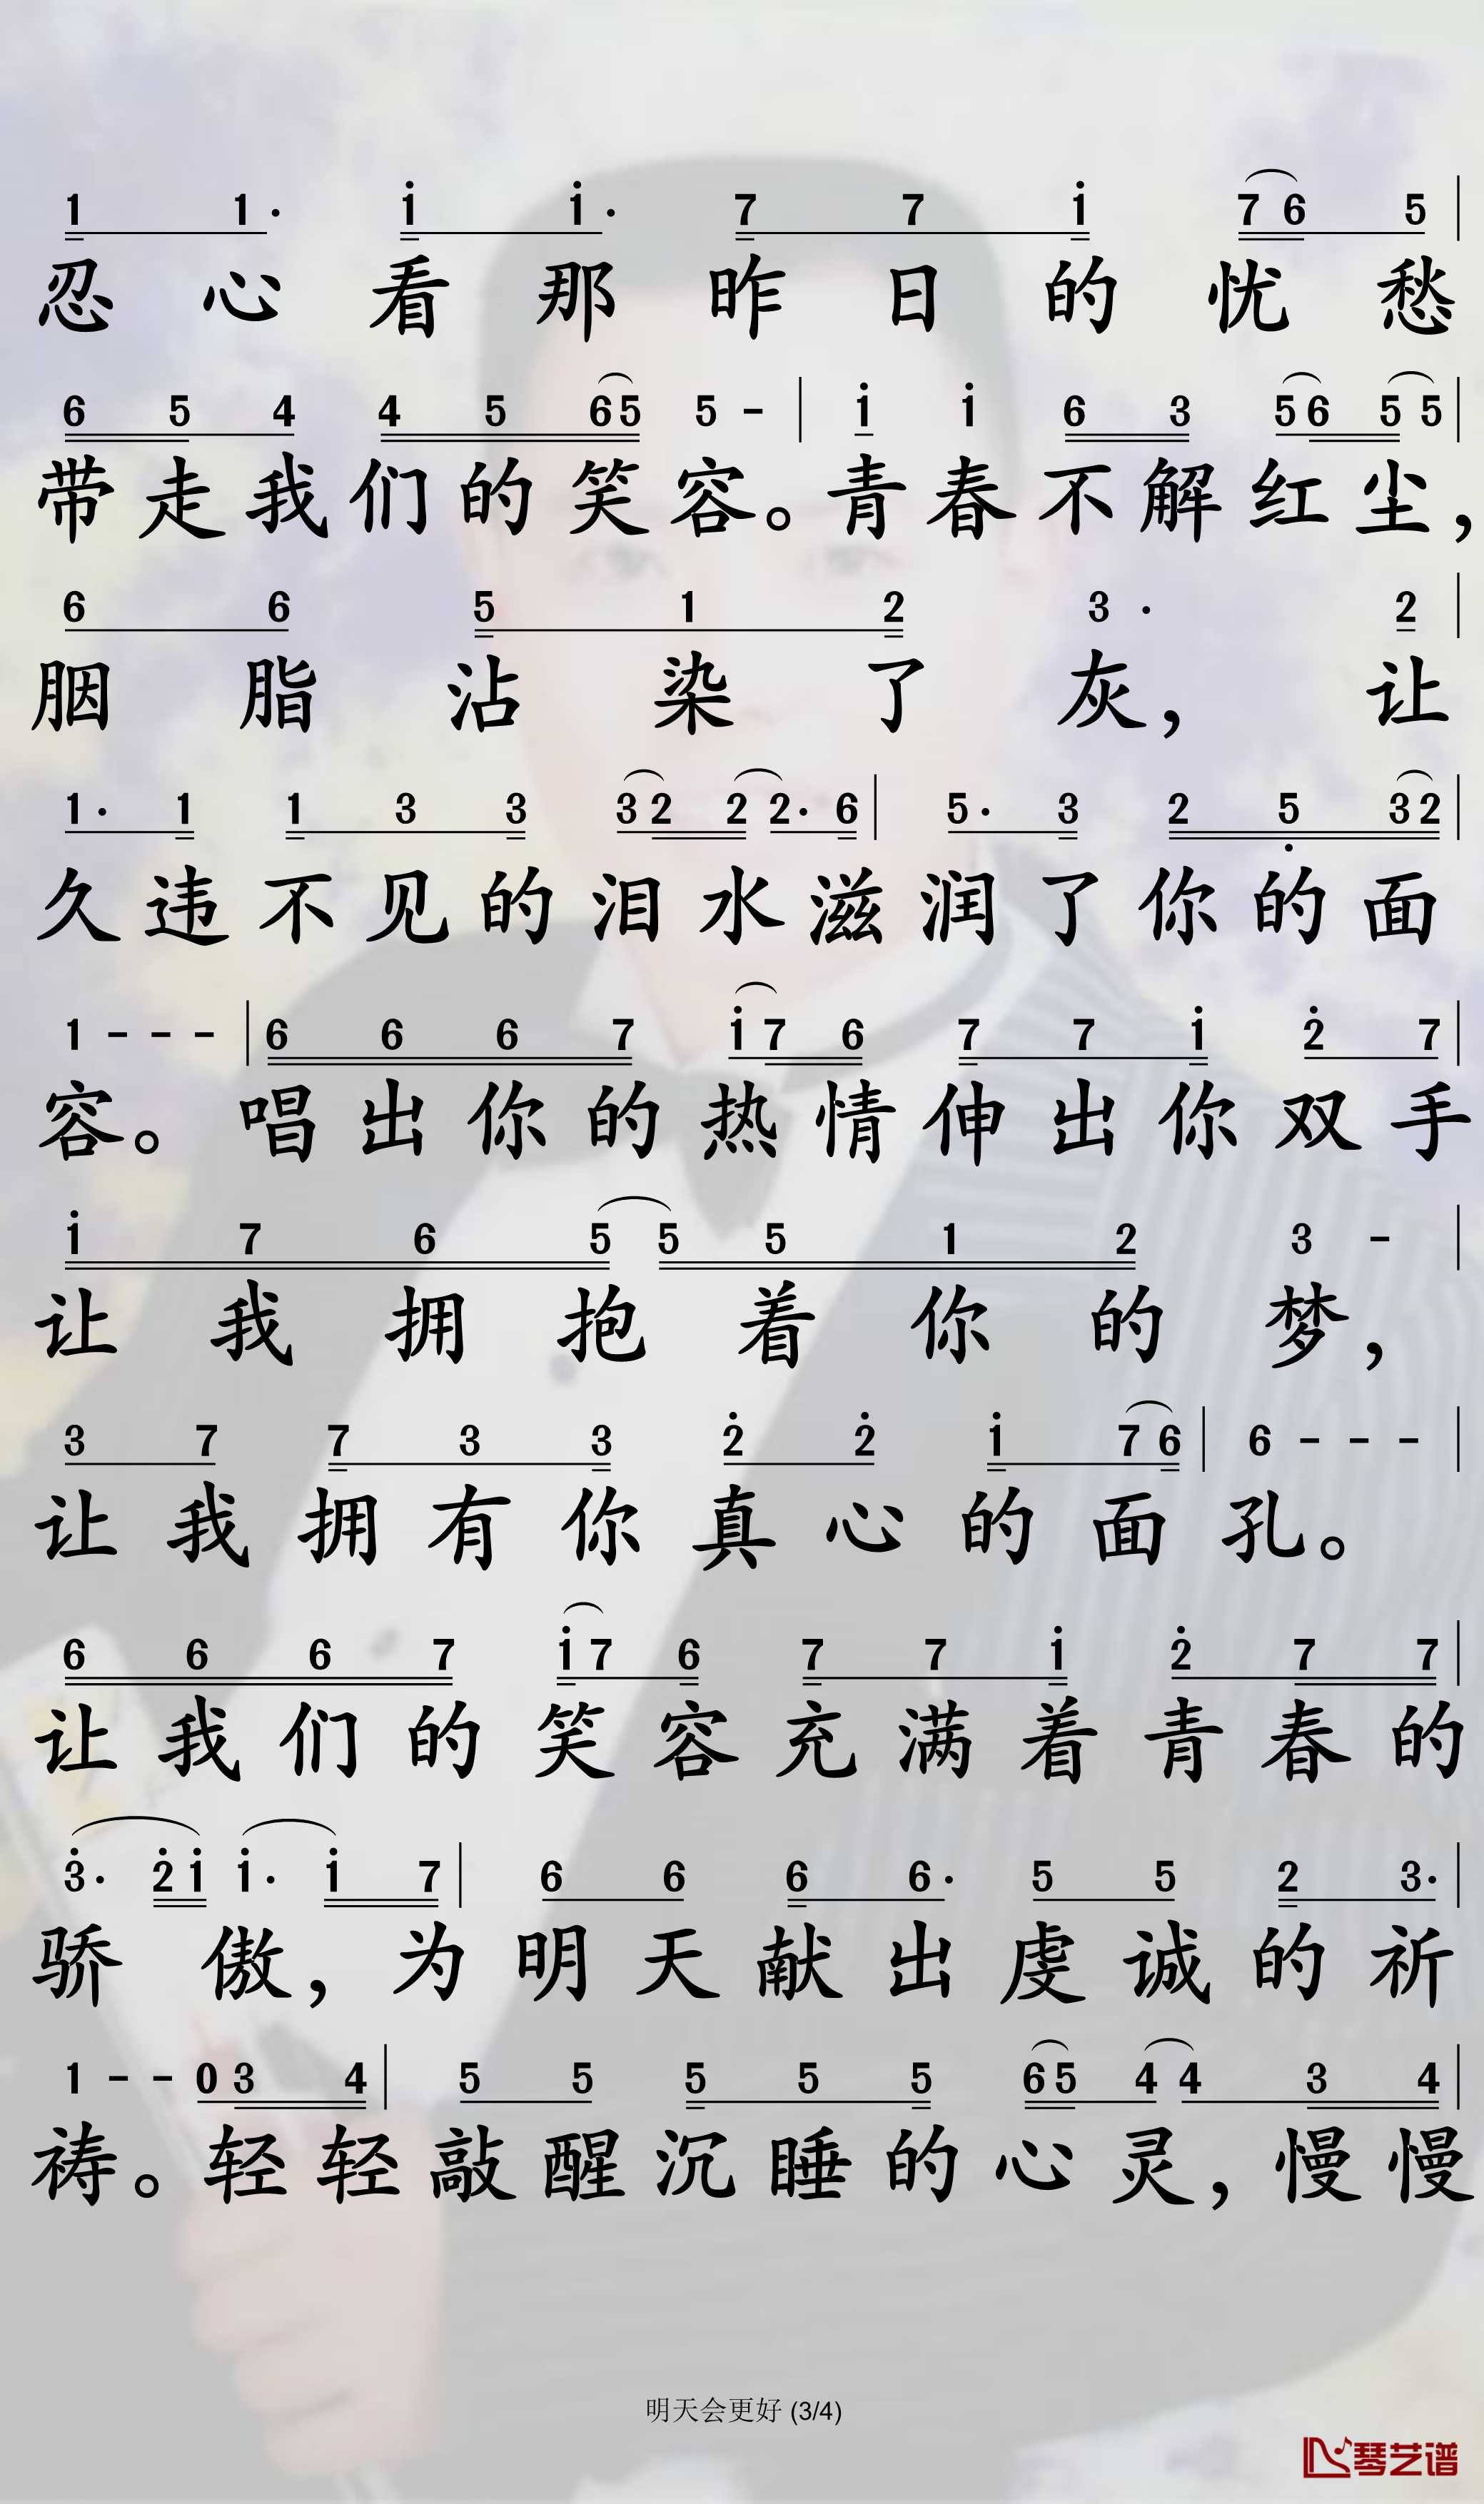 1 1· i i· 7 7 i 7 6 5 |
忍心看那昨日的忧愁
6 5 4 4 5 6 5 5 - | i i 6 3 5 6 5 5 |
带走我们的笑容。青春不解红尘，
6 6 5 1 2 3 · 2 |
胭脂沾染了灰，让
1· 1 1 3 3 3 2 2 2· 6 | 5· 3 2 5 3 2 |
久违不见的泪水滋润了你的面
1 - - - | 6 6 6 7 i 7 6 7 7 i 2 7 |
容。唱出你的热情伸出你双手
i 7 6 5 5 5 1 2 3 - |
让我拥抱着你的梦，
3 7 7 3 3 2 2 i 7 6 | 6 - - - |
让我拥有你真心的面孔。
6 6 6 7 i 7 6 7 7 i 2 7 7 |
让我们的笑容充满着青春的
3· 2 i i· i 7 | 6 6 6 6· 5 5 2 3· |
骄傲，为明天献出虔诚的祈
1 - - 0 3 4 | 5 5 5 5 5 6 5 4 4 3 4 |
祷。轻轻敲醒沉睡的心灵，慢慢
明天会更好 (3/4)
琴艺谱